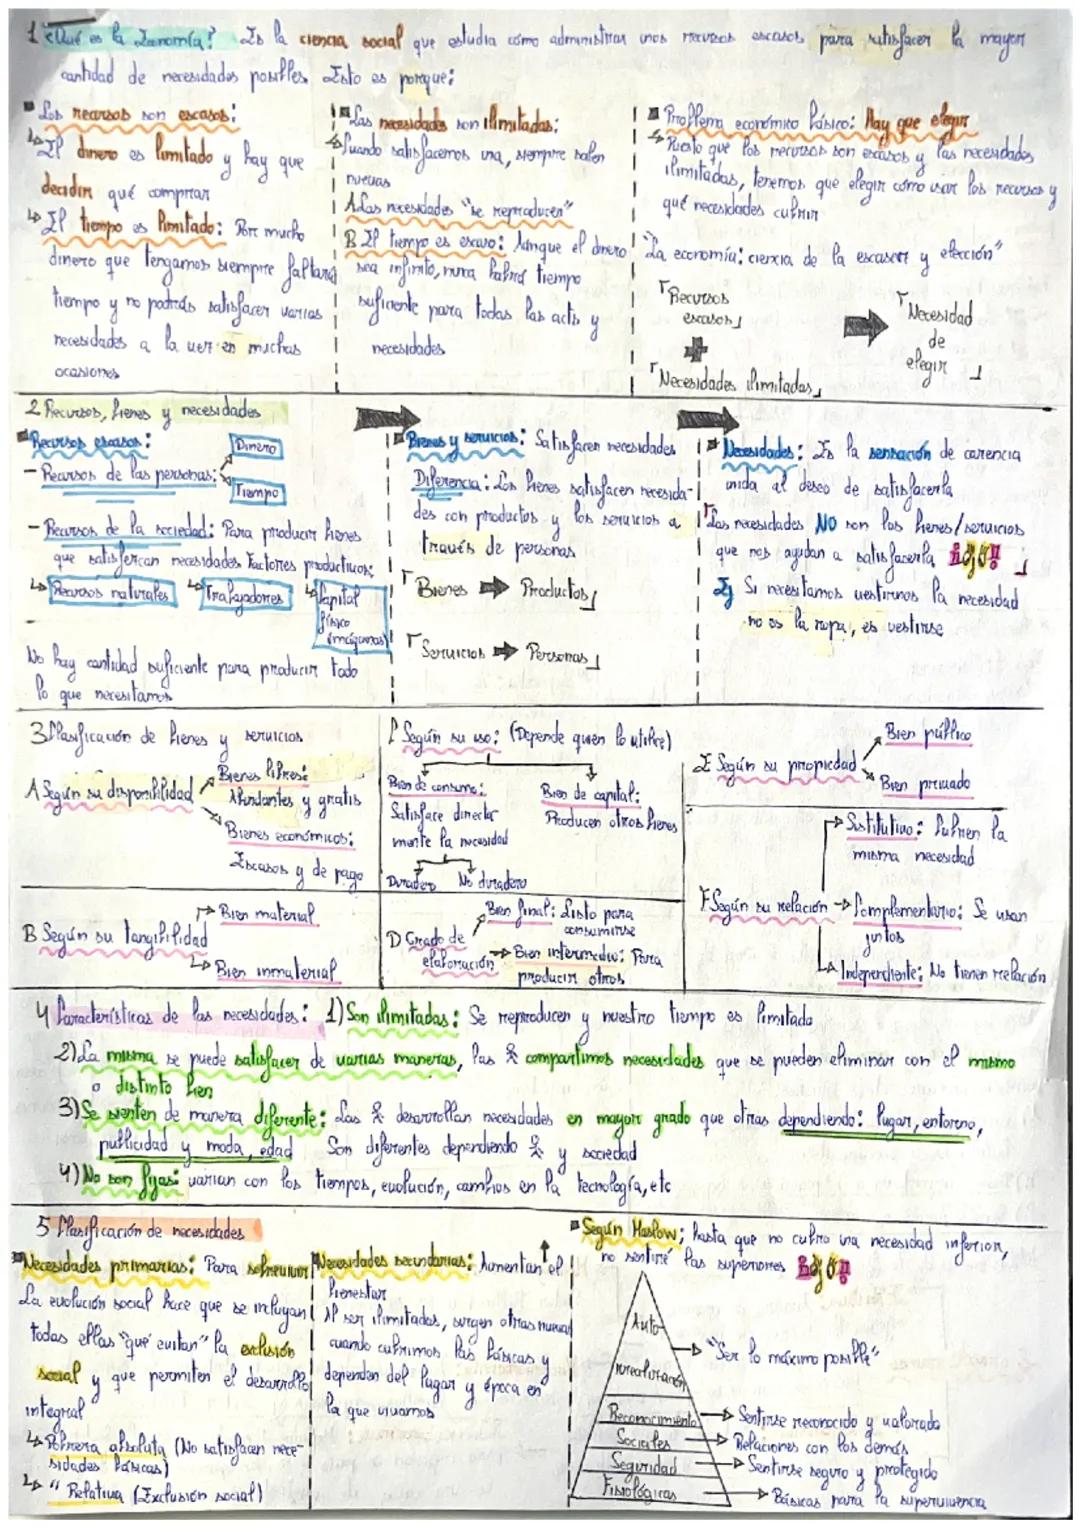 1 ¿Qué es la Economía? Es la ciencia social que estudia cómo administrar unos recursos escasos para satisfacer la mayor
cantidad de necesidades posibles. Esto es porque:
Los recursos son escasos:
↳ El dinero es limitado y hay que
decidir qué comprar
↳ El tiempo es limitado: Por mucho
dinero que tengamos siempre faltará
tiempo y no podrás satisfacer varias
necesidades a la vez en muchas
ocasiones
Las necesidades son ilimitadas:
↳ Cuando satisfacemos una, siempre salen
nuevas
A. Las necesidades "se reproducen"
B. El tiempo es escaso: Aunque el dinero
sea infinito, nunca habrá tiempo
suficiente para todas las acts y
necesidades
Problema económico básico: Hay que elegir
↳ Puesto que los recursos son escasos y las necesidades
ilimitadas, tenemos que elegir cómo usar los recursos y
qué necesidades cubrir
"La economía: ciencia de la escasez y elección"
Recursos
escasos
+
Necesidades ilimitadas
Necesidad
de
elegir
2 Recursos, bienes y necesidades
Recursos escasos:
- Recursos de las personas:
Dinero
Tiempo
- Recursos de la sociedad: Para producir bienes
que satisfezcan necesidades Factores productivos:
↳ Recursos naturales ↳ Trabajadores ↳ Capital
físico
(máquinas)
No hay cantidad suficiente para producir todo
lo que necesitamos
Bienes y servicios: Satisfacen necesidades
Diferencia: Los bienes satisfacen necesida-
des con productos y los servicios a
través de personas
Bienes ➡ Productos
Servicios ➡ Personas
Necesidades: Es la sensación de carencia
unida al deseo de satisfacerla
Las necesidades NO son los bienes/servicios
que nos ayudan a satisfacerla
Ej Si necesitamos vestirnos la necesidad
no es la ropa, es vestirse
3 Clasificación de bienes y servicios
A Según su disponibilidad
Bienes libres:
Abundantes y gratis
Bienes económicos:
Escasos y de pago
B Según su tangibilidad
Bien material
Bien inmaterial
C Según su uso: (Depende quien lo utilice)
Bien de consumo:
Satisface directa
mente la necesidad
Duradero No duradero
Bien de capital:
Producen otros bienes
D Grado de
elaboración
Bien final: Listo para
consumirse
Bien intermedio: Para
producir otros
E Según su propiedad
Bien público
Bien privado
F Según su relación
Sustitutivo: Cubren la
misma necesidad
Complementario: Se usan
juntos
Independiente: No tienen relación
4 Características de las necesidades: 1) Son ilimitadas: Se reproducen y nuestro tiempo es limitado
2) La misma se puede satisfacer de varias maneras, las compartimos necesidades que se pueden eliminar con el mismo
o distinto bien
3) Se sienten de manera diferente: Las desarrollan necesidades en mayor grado que otras dependiendo: lugar, entorno,
publicidad y moda, edad Son diferentes dependiendo y sociedad
4) No son fijas: varian con los tiempos, evolución, cambios en la tecnología, etc
5 Clasificación de necesidades
Necesidades primarias: Para sobrevivir
La evolución social hace que se incluyan
todas ellas "que evitan" la exclusión
social y que permiten el desarrollo
integral
↳ Pobreza absoluta (No satisfacen nece-
sidades básicas)
↳ " Relativa (Exclusión social)
Necesidades secundarias: Aumentan el
bienestar
Al ser ilimitadas, surgen otras nuevas
cuando cubrimos las básicas y
dependen del lugar y época en
la que vivamos
Según Maslow: hasta que no cubro una necesidad inferior,
no sentiré las superiores
Auto-
rrealización → "Ser lo máximo posible"
Reconocimiento → Sentirse reconocido y valorado
Sociales → Relaciones con los demás
Seguridad → Sentirse seguro y protegido
Fisiológicas → Básicas para la supervivencia